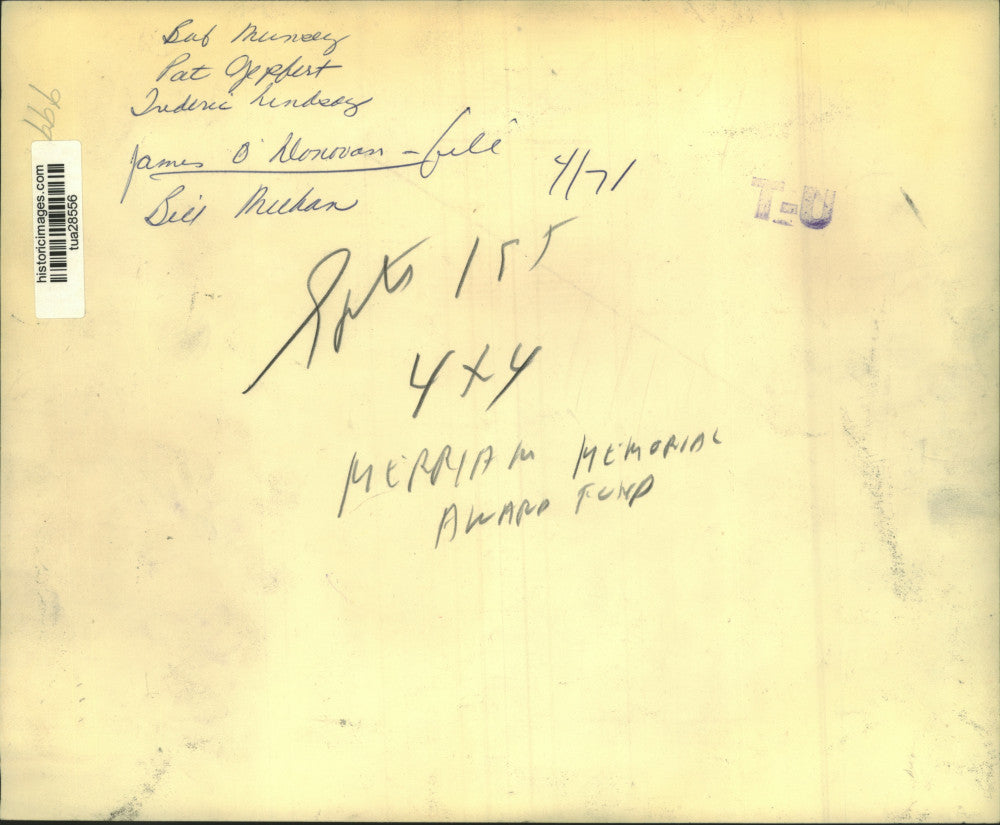 Bob Munsey
Pat Geppert
Frederic Lindsay
James O'Donovan - file
Bill Meehan
4/71
T-U
historicimages.com
tua28556
Spts 155
4x4
MERRIAM MEMORIAL
AWARD FUND